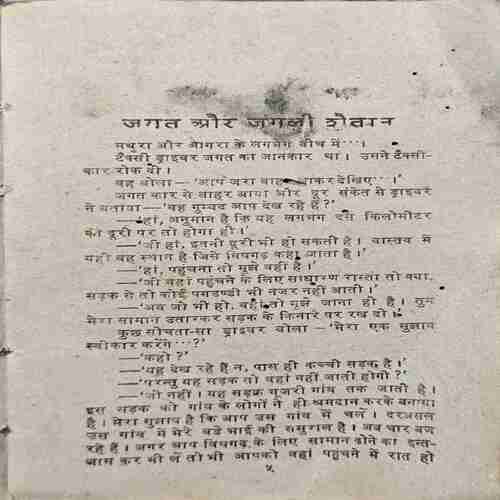 जगत और जंगली शैतान
मथुरा और आगरा के लगभग बीच में···।
टैक्सी ड्राइवर जगत का जानकार था। उसने टैक्सी-
कार रोक दी।
वह बोला—'आप जरा बाहर आकर देखिए···।'
जगत कार से बाहर आया और दूर संकेत से ड्राइवर
ने बताया—'वह गुम्बद आप देख रहे हैं?'
—'हां, अनुमान है कि यह लगभग दस किलोमीटर
की दूरी पर तो होगा ही।'
—'जी हां, इतनी दूरी भी हो सकती है। वास्तव में
यही वह स्थान है जिसे विषगढ़ कहा जाता है।'
—'हां, पहुंचना तो मुझे वहीं है।'
—'जी वहां पहुंचने के लिए साधारण रास्ता तो क्या,
सड़क से तो कोई पगडण्डी भी नजर नहीं आती।'
—'अब जो भी हो, वहीं तो मुझे जाना ही है। तुम
मेरा सामान उतारकर सड़क के किनारे पर रख दो।'
कुछ सोचता-सा ड्राइवर बोला—'मेरा एक सुझाव
स्वीकार करेंगे···?'
—'कहो?'
—'यह देख रहे हैं न, पास ही कच्ची सड़क है।'
—'परन्तु यह सड़क तो वहां नहीं जाती होगी?'
—'जी नहीं। यह सड़क गूजरी गांव तक जाती है।
इस सड़क को गांव के लोगों ने ही श्रमदान करके बनाया
है। मेरा सुझाव है कि आप उस गांव में चलें। दरअसल
उस गांव में मेरे बड़े भाई की ससुराल है। अब चार बज
रहे हैं। अगर आप विषगढ़ के लिए सामान ढोने का इन्त-
जाम कर भी लें तो भी आपको वहां पहुंचने में रात हो
५